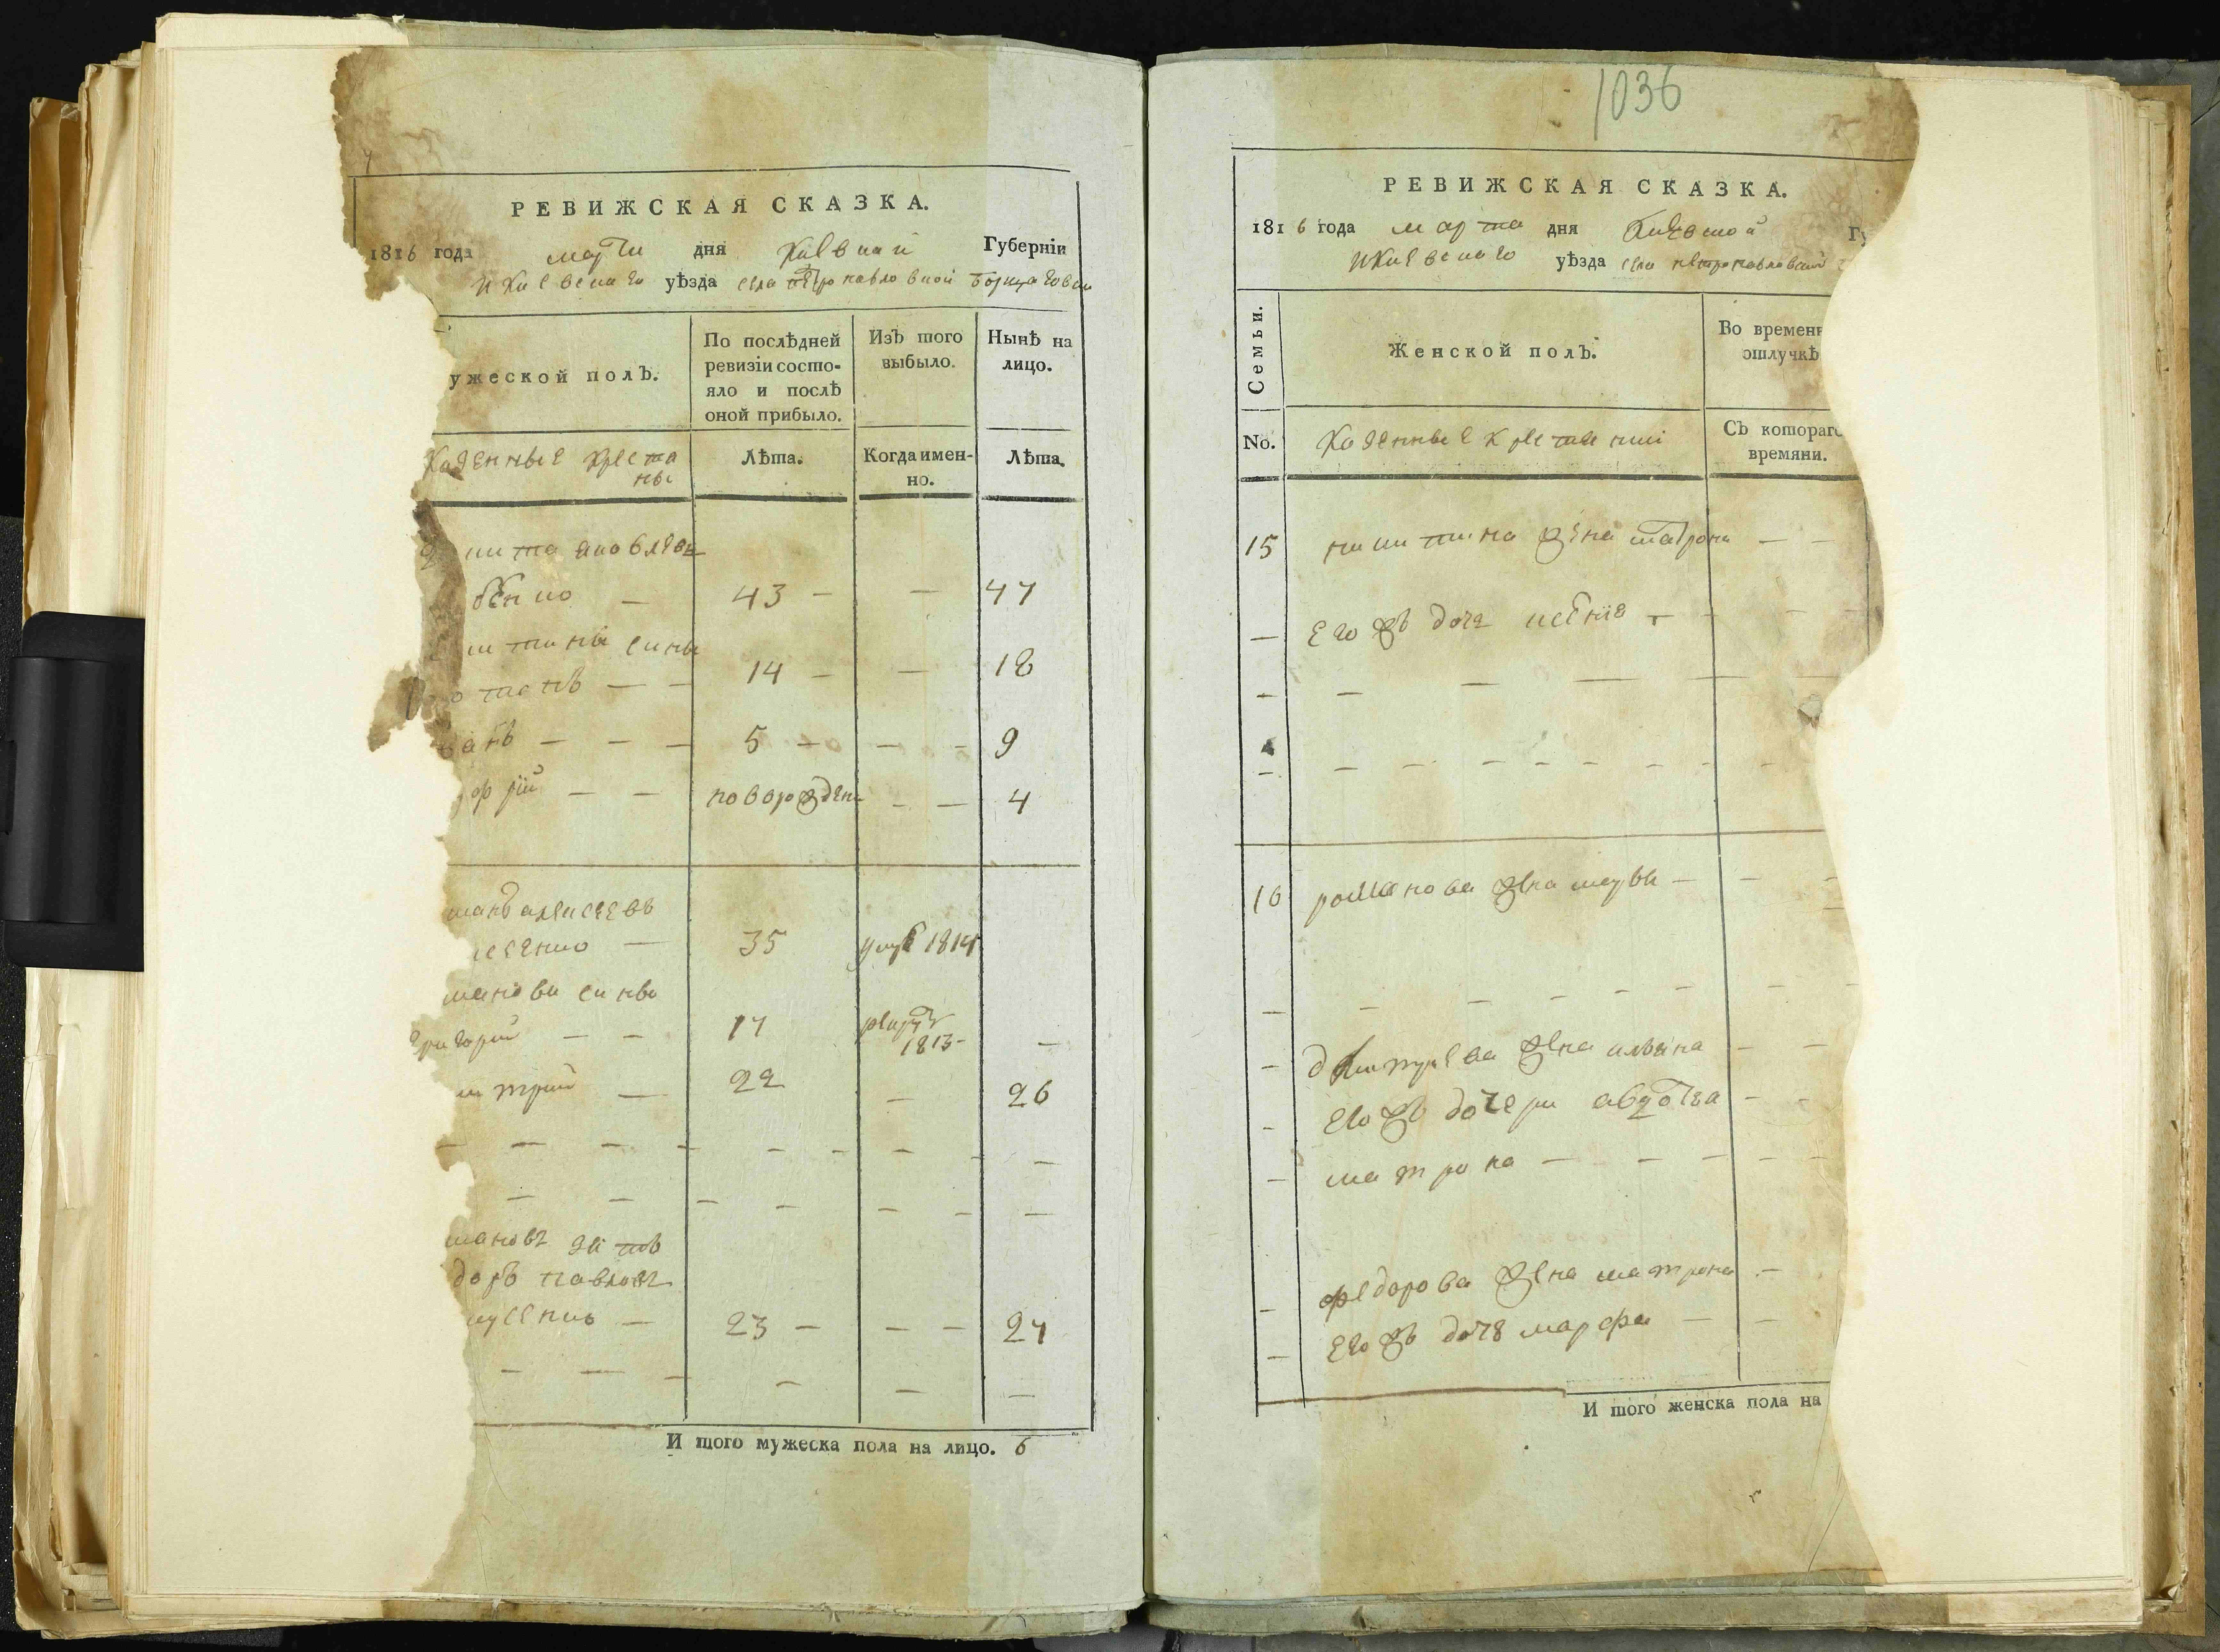 РЕВИЖСКАЯ СКАЗКА.
1816 года марта дня Киевской Губерніи
И Киевскаго уѣзда села петропавловской борщаговки
ужеской полЪ.
По послѣдней ревизіи состо-
яло и послѣ
оной прибыло.
ИзЪ того
выбыло.
Нынѣ на
лицо.
Казенные кресть
яны
Лѣта.
Когда имен-
но.
Лѣта.
кита яковлевъ
43 — — 47
китины сины
14 — — 18
ванъ — — — 5 — — — 9
новорожден — — 4
манъ алексеевъ
35 умре 1814
мановы сины
григорий — — 17 рекрутъ
1813 — —
митрий — 22 — 26
мановъ зять
доръ павловъ
23 — — — 27
И того мужеска пола на лицо. 6
1036
РЕВИЖСКАЯ СКАЗКА.
1816 года марта дня Киевской Гу
И Киевскаго уѣзда села петропавловской
Семьи.
Женской полЪ.
Во времен
отлучкѣ
No.
Казенные крестьянки
СЪ котораго
времяни.
15 никитина жена матрона — —
— Его жъ доч ксенія — —
16 романова жена — — —
— дмитриева жена ульяна — —
— Его жъ дочери авдотья — —
— матрона — — — — —
— федорова жена матрона —
— Его жъ доч марфа — —
И того женска пола на